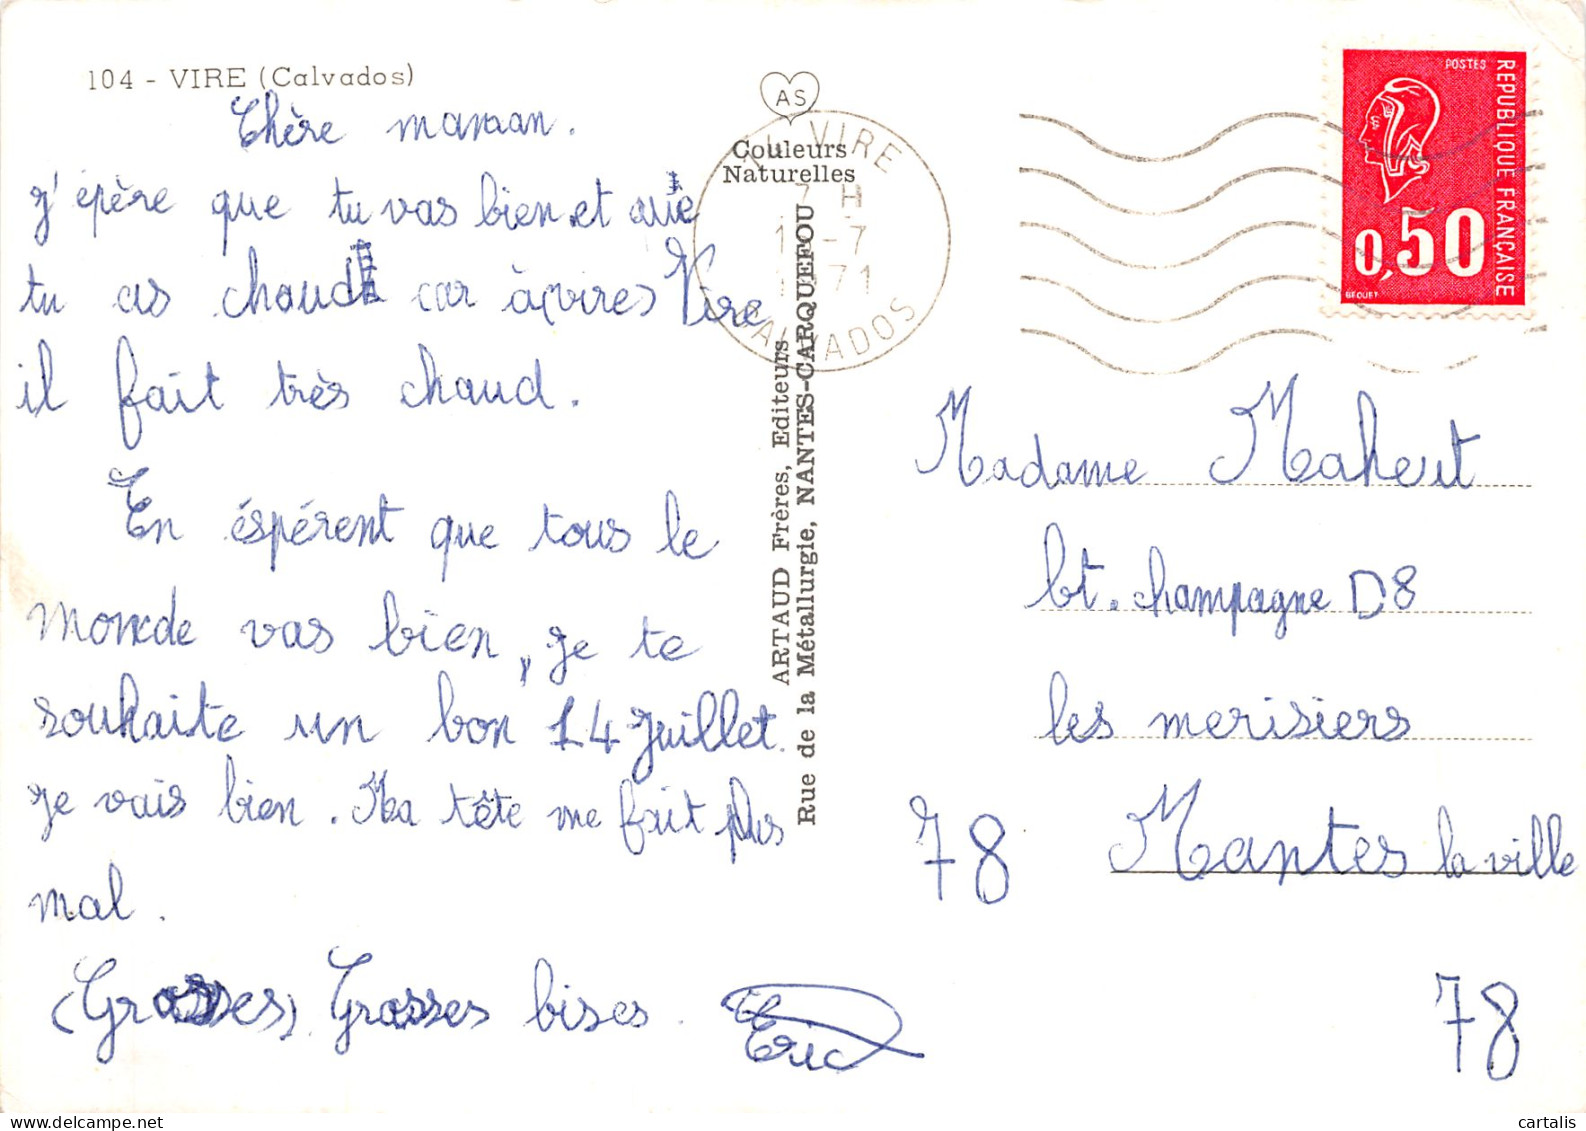 104 - VIRE (Calvados)
Chère maman.
J'épère que tu vas bien et que
tu as chaud car à Vire
il fait très chaud.
En éspérent que tous le
monde vas bien, je te
souhaite un bon 14 Juillet.
Je vais bien. Ma tête me fait plus
mal.
(Grosses) Grosses bises.
Eric
AS
Couleurs
Naturelles
ARTAUD Frères, Editeurs
Rue de la Métallurgie, NANTES-CARQUEFOU
VIRE
7 H
-7
1971
CALVADOS
POSTES
REPUBLIQUE FRANÇAISE
0,50
BEQUET
Madame Maheut
bt. champagne D8
les merisiers
78 Mantes la ville
78
cartalis